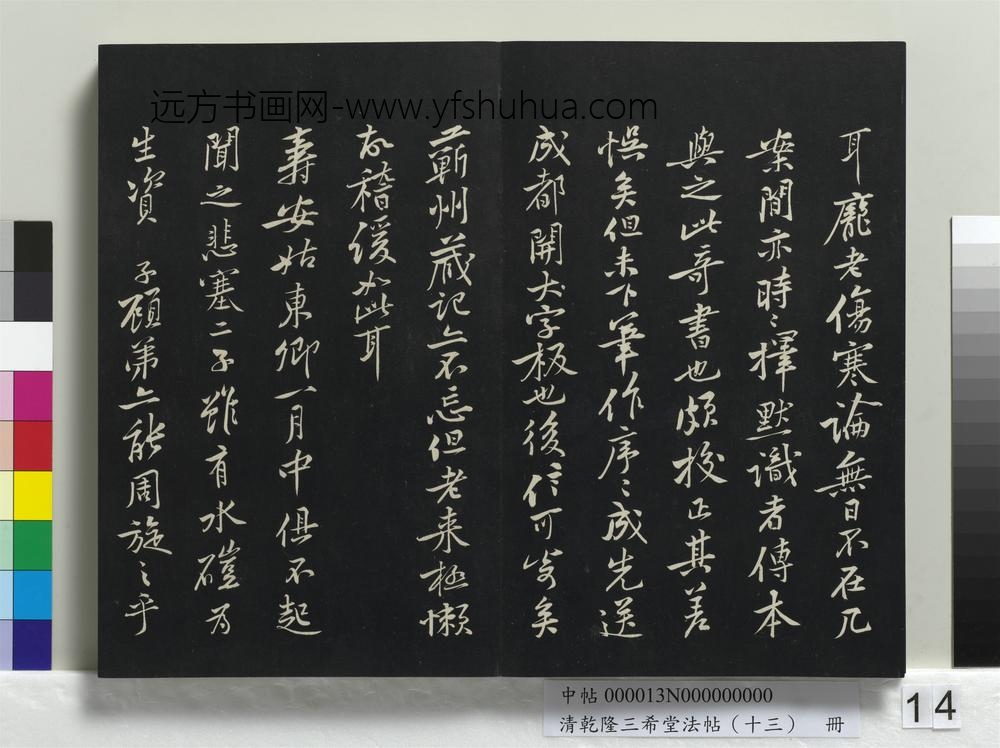 远方书画网-www.yfshuhua.com
耳龐老傷寒論無日不在几
案間亦時〻擇默識者傳本
與之此奇書也頗校正其差
悮矣但未下筆作序〻成先送
成都開大字板也後信可寄矣
蘄州藏記亦不忘但老來極懶
故稽緩如此耳
壽安姑東卿一月中俱不起
聞之悲塞二子雖有水磑為
生資 子顧弟亦能周旋之乎
中帖 000013N000000000
清乾隆三希堂法帖（十三） 冊
14